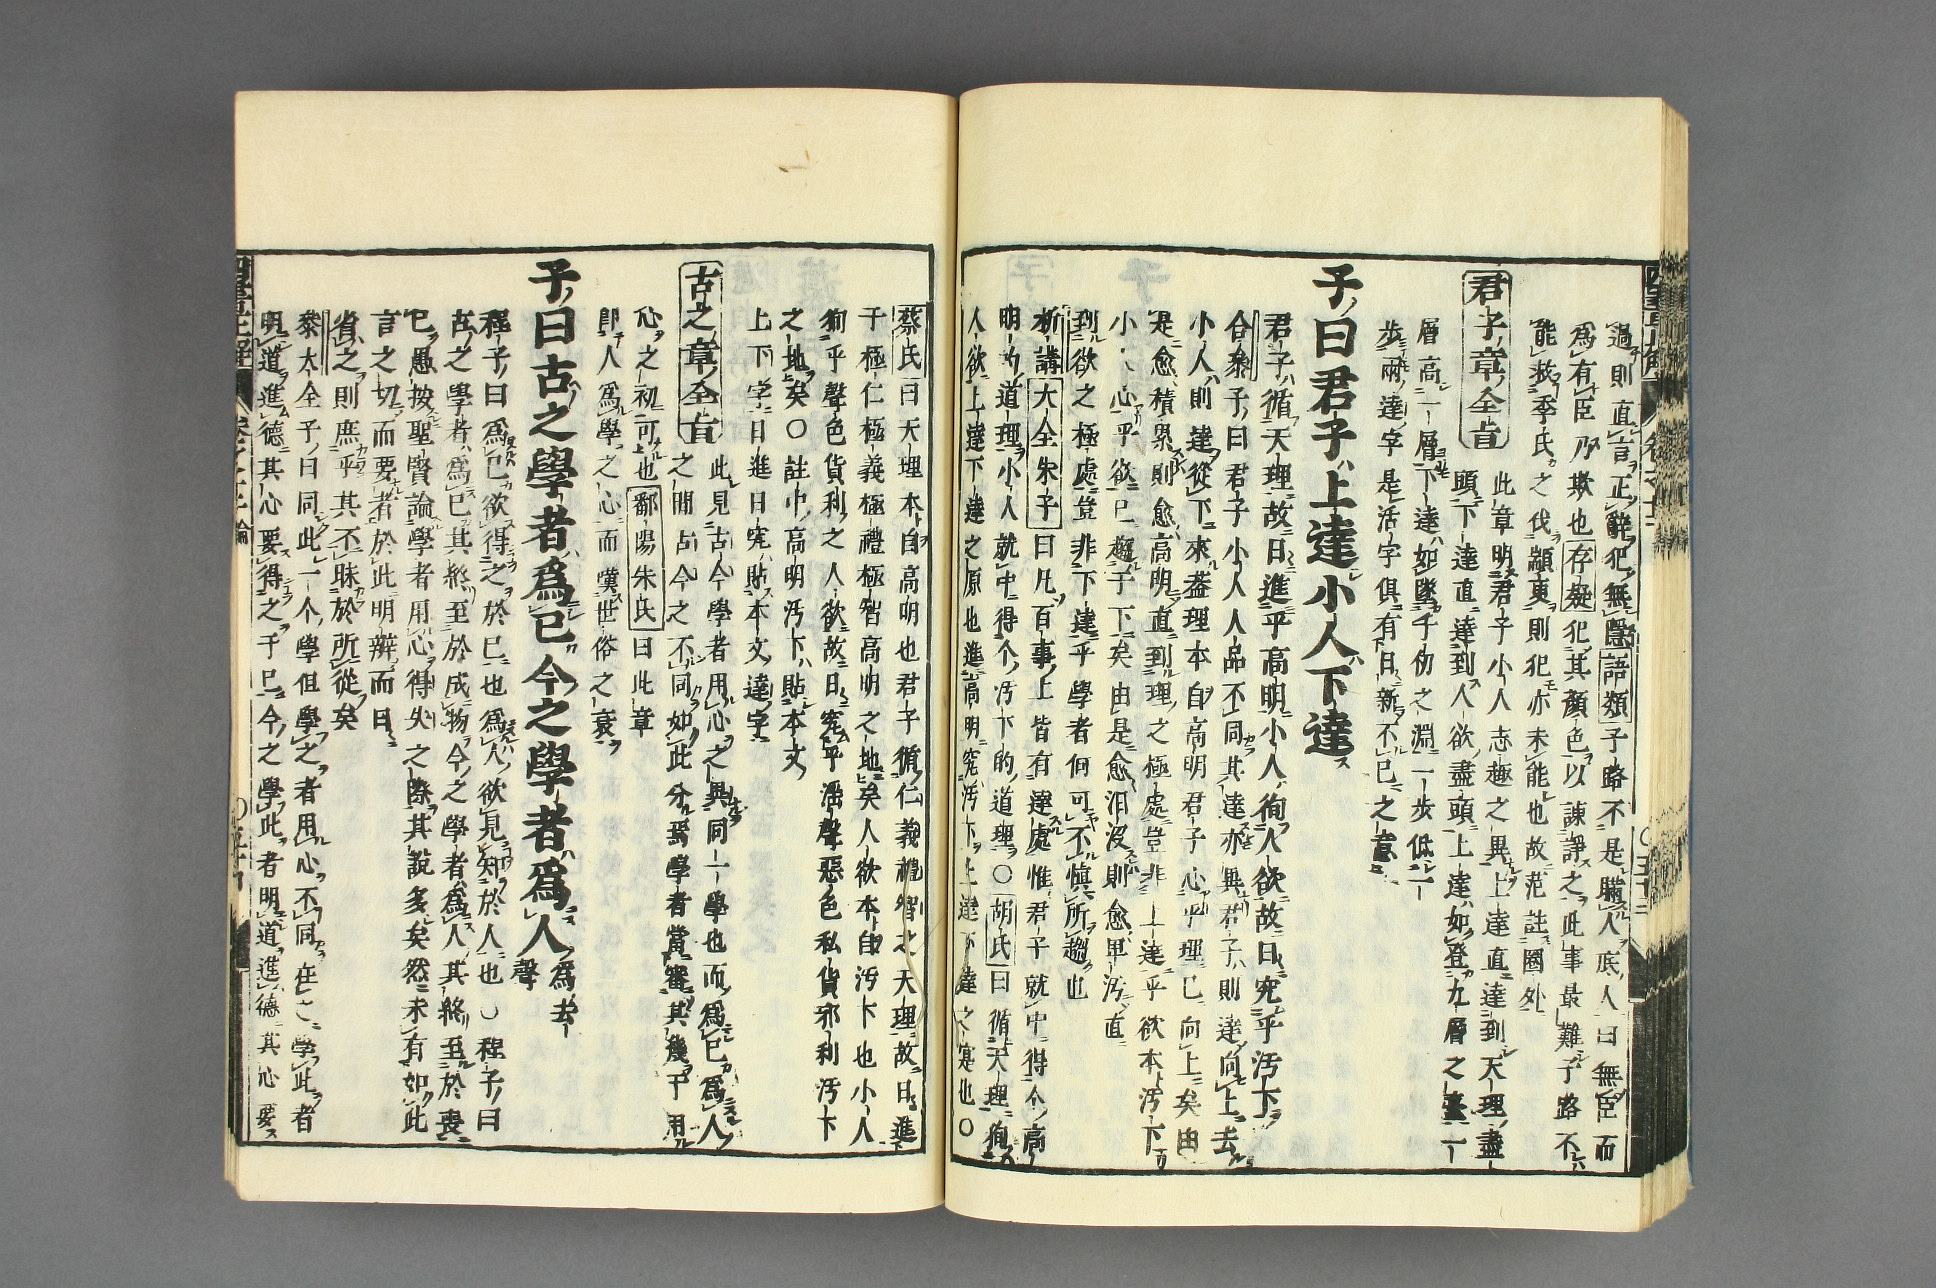 過則直言正辭犯無隱語類子路不是瞞人底人曰無臣而
爲有臣乃欺也存疑犯其顏色以諫諍之此事最難子路不
能救季氏之伐顓臾則犯亦未能也故范註圈外
君子章全旨
此章明君子小人志趣之異上達直達到天理盡
頭下達直達到人欲盡頭上達如登九層之臺一
層高一層下達如墜千仞之淵一步低一
步兩達字是活字俱有日新不已之意
子曰君子上達小人下達
君子循天理故日進乎高明小人徇人欲故日究乎汚下
合參子曰君子小人人品不同其達亦異君子則達向上去
小人則達從下來蓋理本自高明君子心乎理已向上矣由
是愈積累則愈高明直到理之極處豈非上達乎欲本汚下
小人心乎欲已趨于下矣由是愈汨沒則愈卑汚直
到欲之極處豈非下達乎學者何可不愼所趨也
析講大全朱子曰凡百事上皆有達處惟君子就中得个高
明的道理小人就中得个汚下的道理〇胡氏曰循天理徇
人欲上達下達之原也進高明究汚下上達下達之寔也〇
蔡氏曰天理本自高明也君子循仁義禮智之天理故日進
于極仁極義極禮極智高明之地矣人欲本自汚下也小人
徇乎聲色貨利之人欲故日究乎淫聲惡色私貨邪利汚下
之地矣〇註中高明汚下貼本文
上下字日進日究貼本文達字
古之章全旨
此見古今學者用心之異同一學也而爲己爲人
之間古今之不同如此分焉學者當審其幾于用
心之初可也鄱陽朱氏曰此章
卽人爲學之心而嘆世俗之衰
子曰古之學者爲己今之學者爲人
爲去
聲
程子曰爲己欲得之於己也爲人欲見知於人也〇程子曰
古之學者爲己其終至於成物今之學者爲人其終至於喪
己愚按聖賢論學者用心得失之際其說多矣然未有如此
言之切而要者於此明辨而日
省之則庶乎其不昧於所從矣
參大全子曰同此一个學但學之者用心不同在古學此者
明道進德其心要得之于己今之學此者明道進德其心要